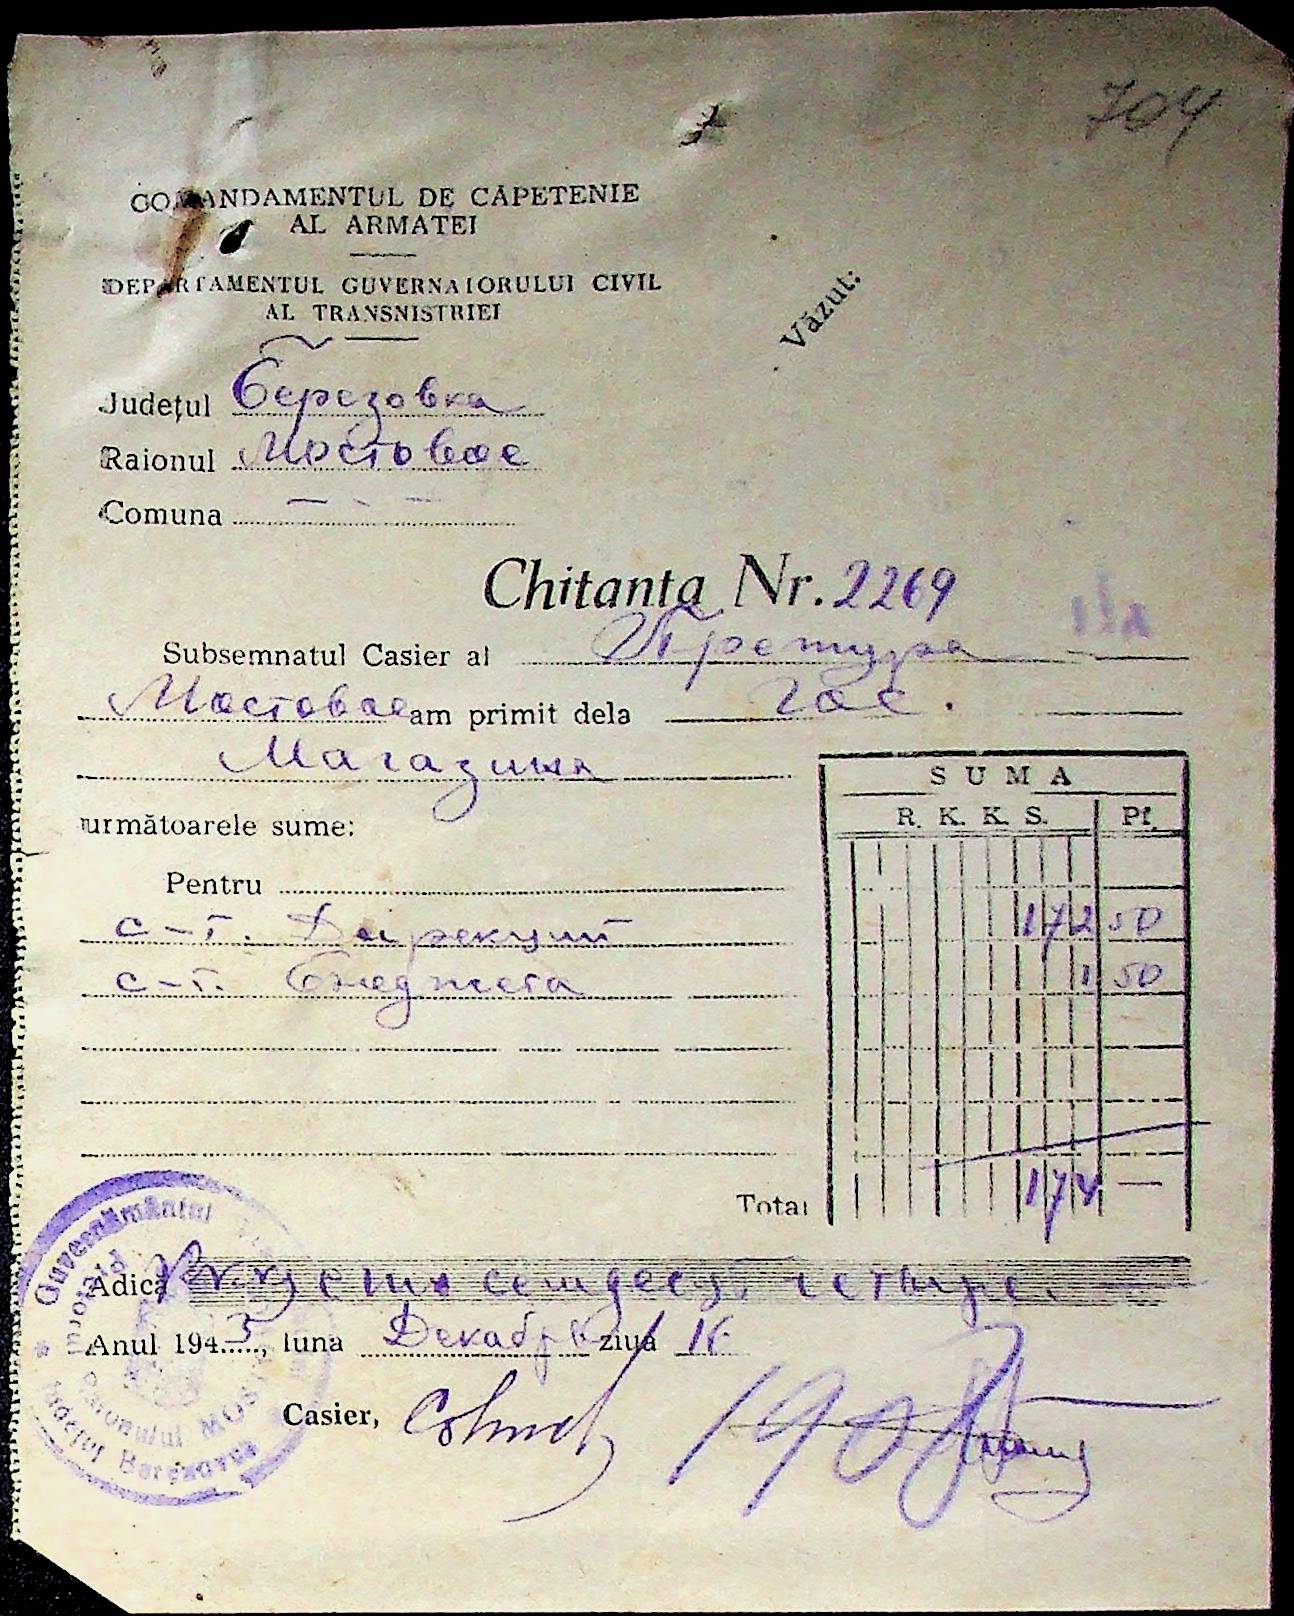 704
COMANDAMENTUL DE CAPETENIE
AL ARMATEI
DEPARTAMENTUL GUVERNATORULUI CIVIL
AL TRANSNISTRIEI
Văzut:
Județul Березовка
Raionul Мостовое
Comuna
Chitanta Nr. 2269
Subsemnatul Casier al Претура
Мостовое am primit dela Гос.
Магазина
următoarele sume:
SUMA
R. K. K. S. Pf.
Pentru
с-т. Дирекции 172 50
с-т. Бюджета 1 50
Total 174 —
Adică семдесят четыре.
Anul 1943, luna Декабрь ziua 16
Casier,
Guvernământul
Raionului MOSTOVOI
Județul Berezovca